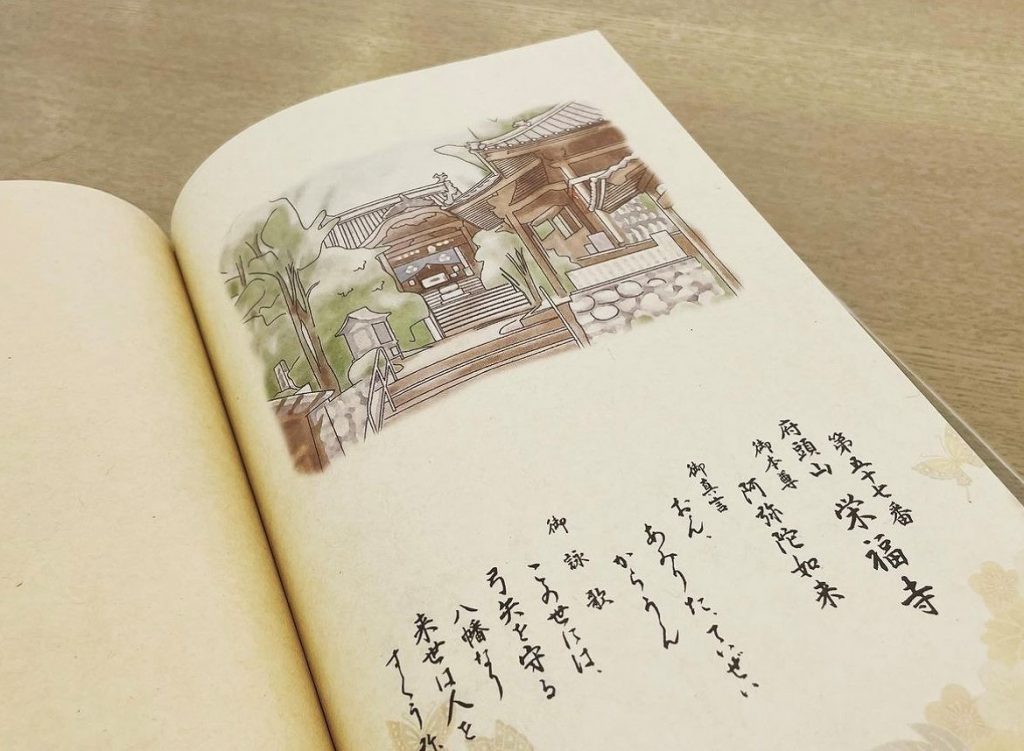 第五十七番
府頭山 栄福寺
御本尊
阿弥陀如来
御真言
おん、
あみりた、ていぜい
からうん
御詠歌
この世には、
弓矢を守る
八幡なり
来世は人を
すくう弥